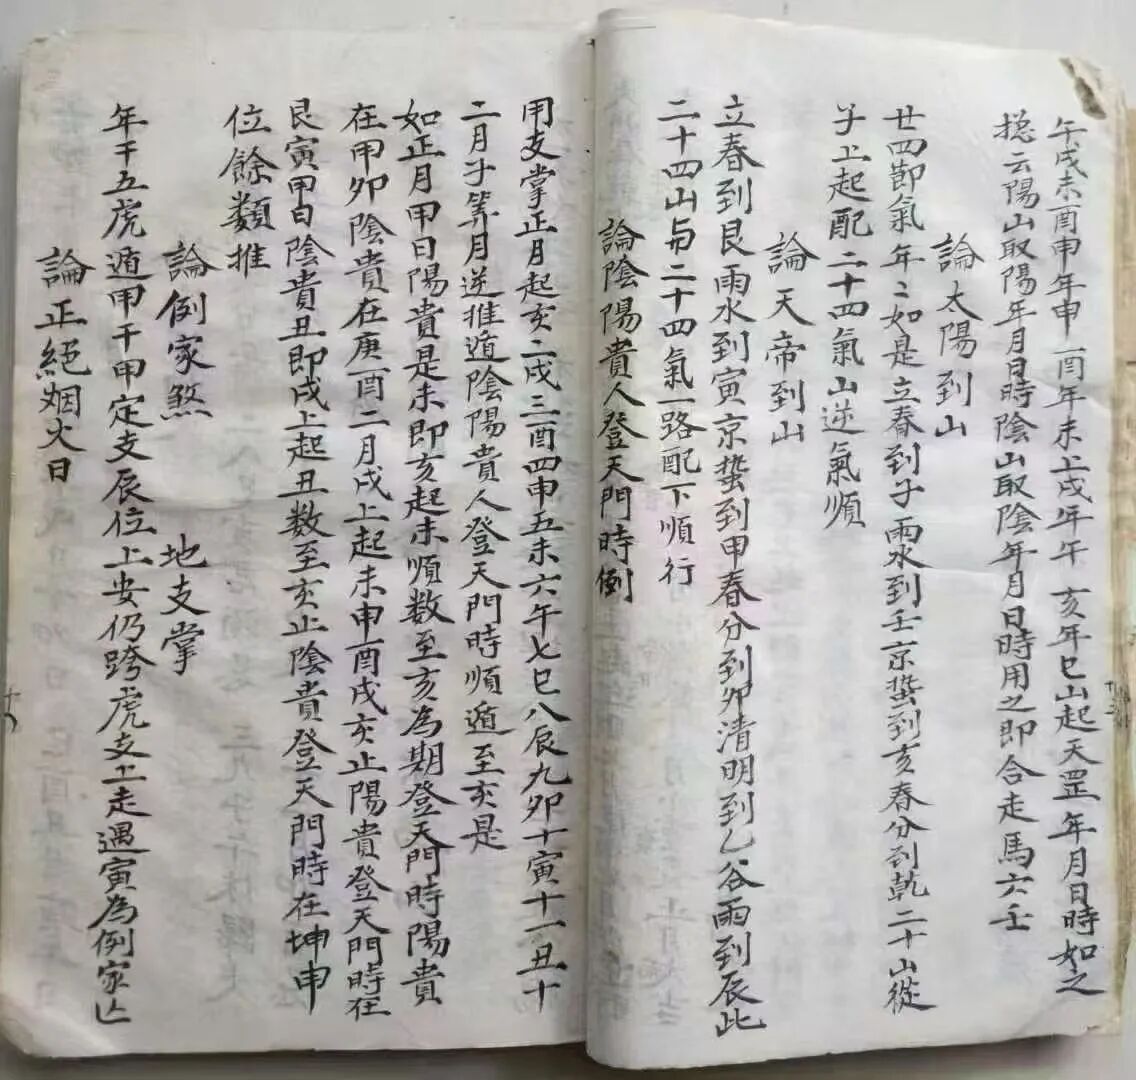 午戌未酉申年申 酉年未上戌年午 亥年巳山起天罡年月日時如之
捴云陽山取陽年月日時陰山取陰年月日時用之即合走馬六壬
論太陽到山
廿四節氣年〻如是立春到子雨水到壬京蛰到亥春分到乾二十山從
子上起配二十四氣山逆氣順
論天帝到山
立春到艮雨水到寅京蛰到甲春分到卯清明到乙谷雨到辰此
二十四山与二十四氣一路配下順行
論陰陽貴人登天門時例
用支掌正月起亥二戌三酉四申五未六午七巳八辰九卯十寅十一丑十
二月子等月逆推遁陰陽貴人登天門時順遁至亥是
如正月甲日陽貴是未即亥起未順数至亥為期登天門時陽貴
在甲卯陰貴在庚酉二月戌上起未申酉戌亥止陽貴登天門時在
艮寅甲日陰貴丑即戌上起丑数至亥止陰貴登天門時在坤申
位餘類推
論例家煞 地支掌
年干五虎遁甲干甲定支辰位上安仍跨虎支上走遇寅為例家亾
論正絕烟火日